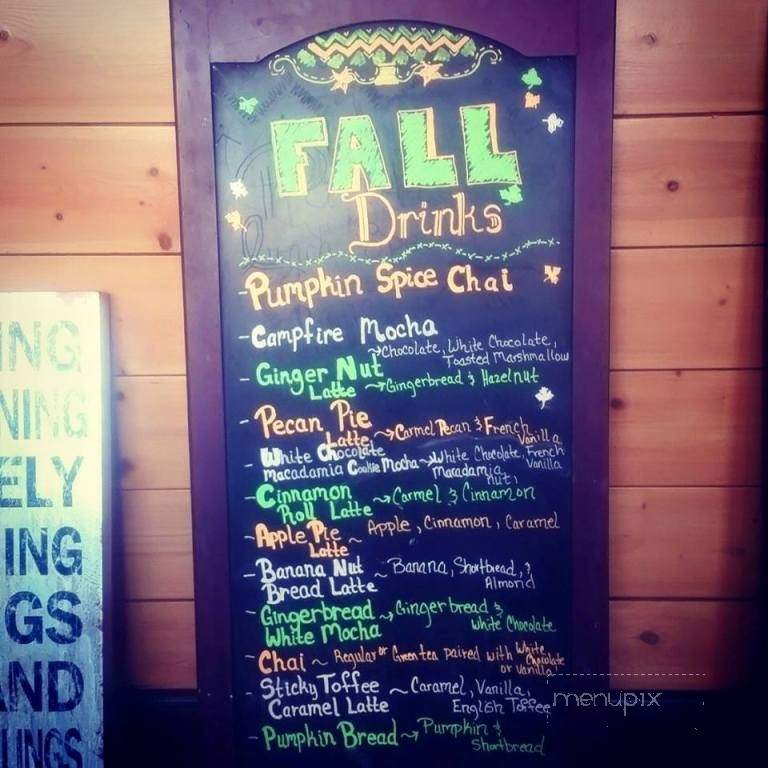 FALL
Drinks
- Pumpkin Spice Chai
- Campfire Mocha
→Chocolate, White Chocolate,
Toasted Marshmallow
- Ginger Nut
Latte →Gingerbread & Hazelnut
- Pecan Pie
Latte →Carmel Pecan & French
Vanilla
- White Chocolate
Macadamia Cookie Mocha →White Chocolate, French
Macadamia Vanilla
nut,
- Cinnamon
Roll Latte →Carmel & Cinnamon
- Apple Pie
Latte ~ Apple, Cinnamon, Caramel
- Banana Nut
Bread Latte ~ Banana, Shortbread, &
Almond
- Gingerbread
White Mocha →Gingerbread &
White Chocolate
- Chai ~ Regular or Green tea paired with White
Chocolate
or Vanilla
- Sticky Toffee
Caramel Latte ~ Caramel, Vanilla,
English Toffee
- Pumpkin Bread →Pumpkin &
Shortbread
ING
NING
ELY
ING
GS
AND
LINGS
menupix